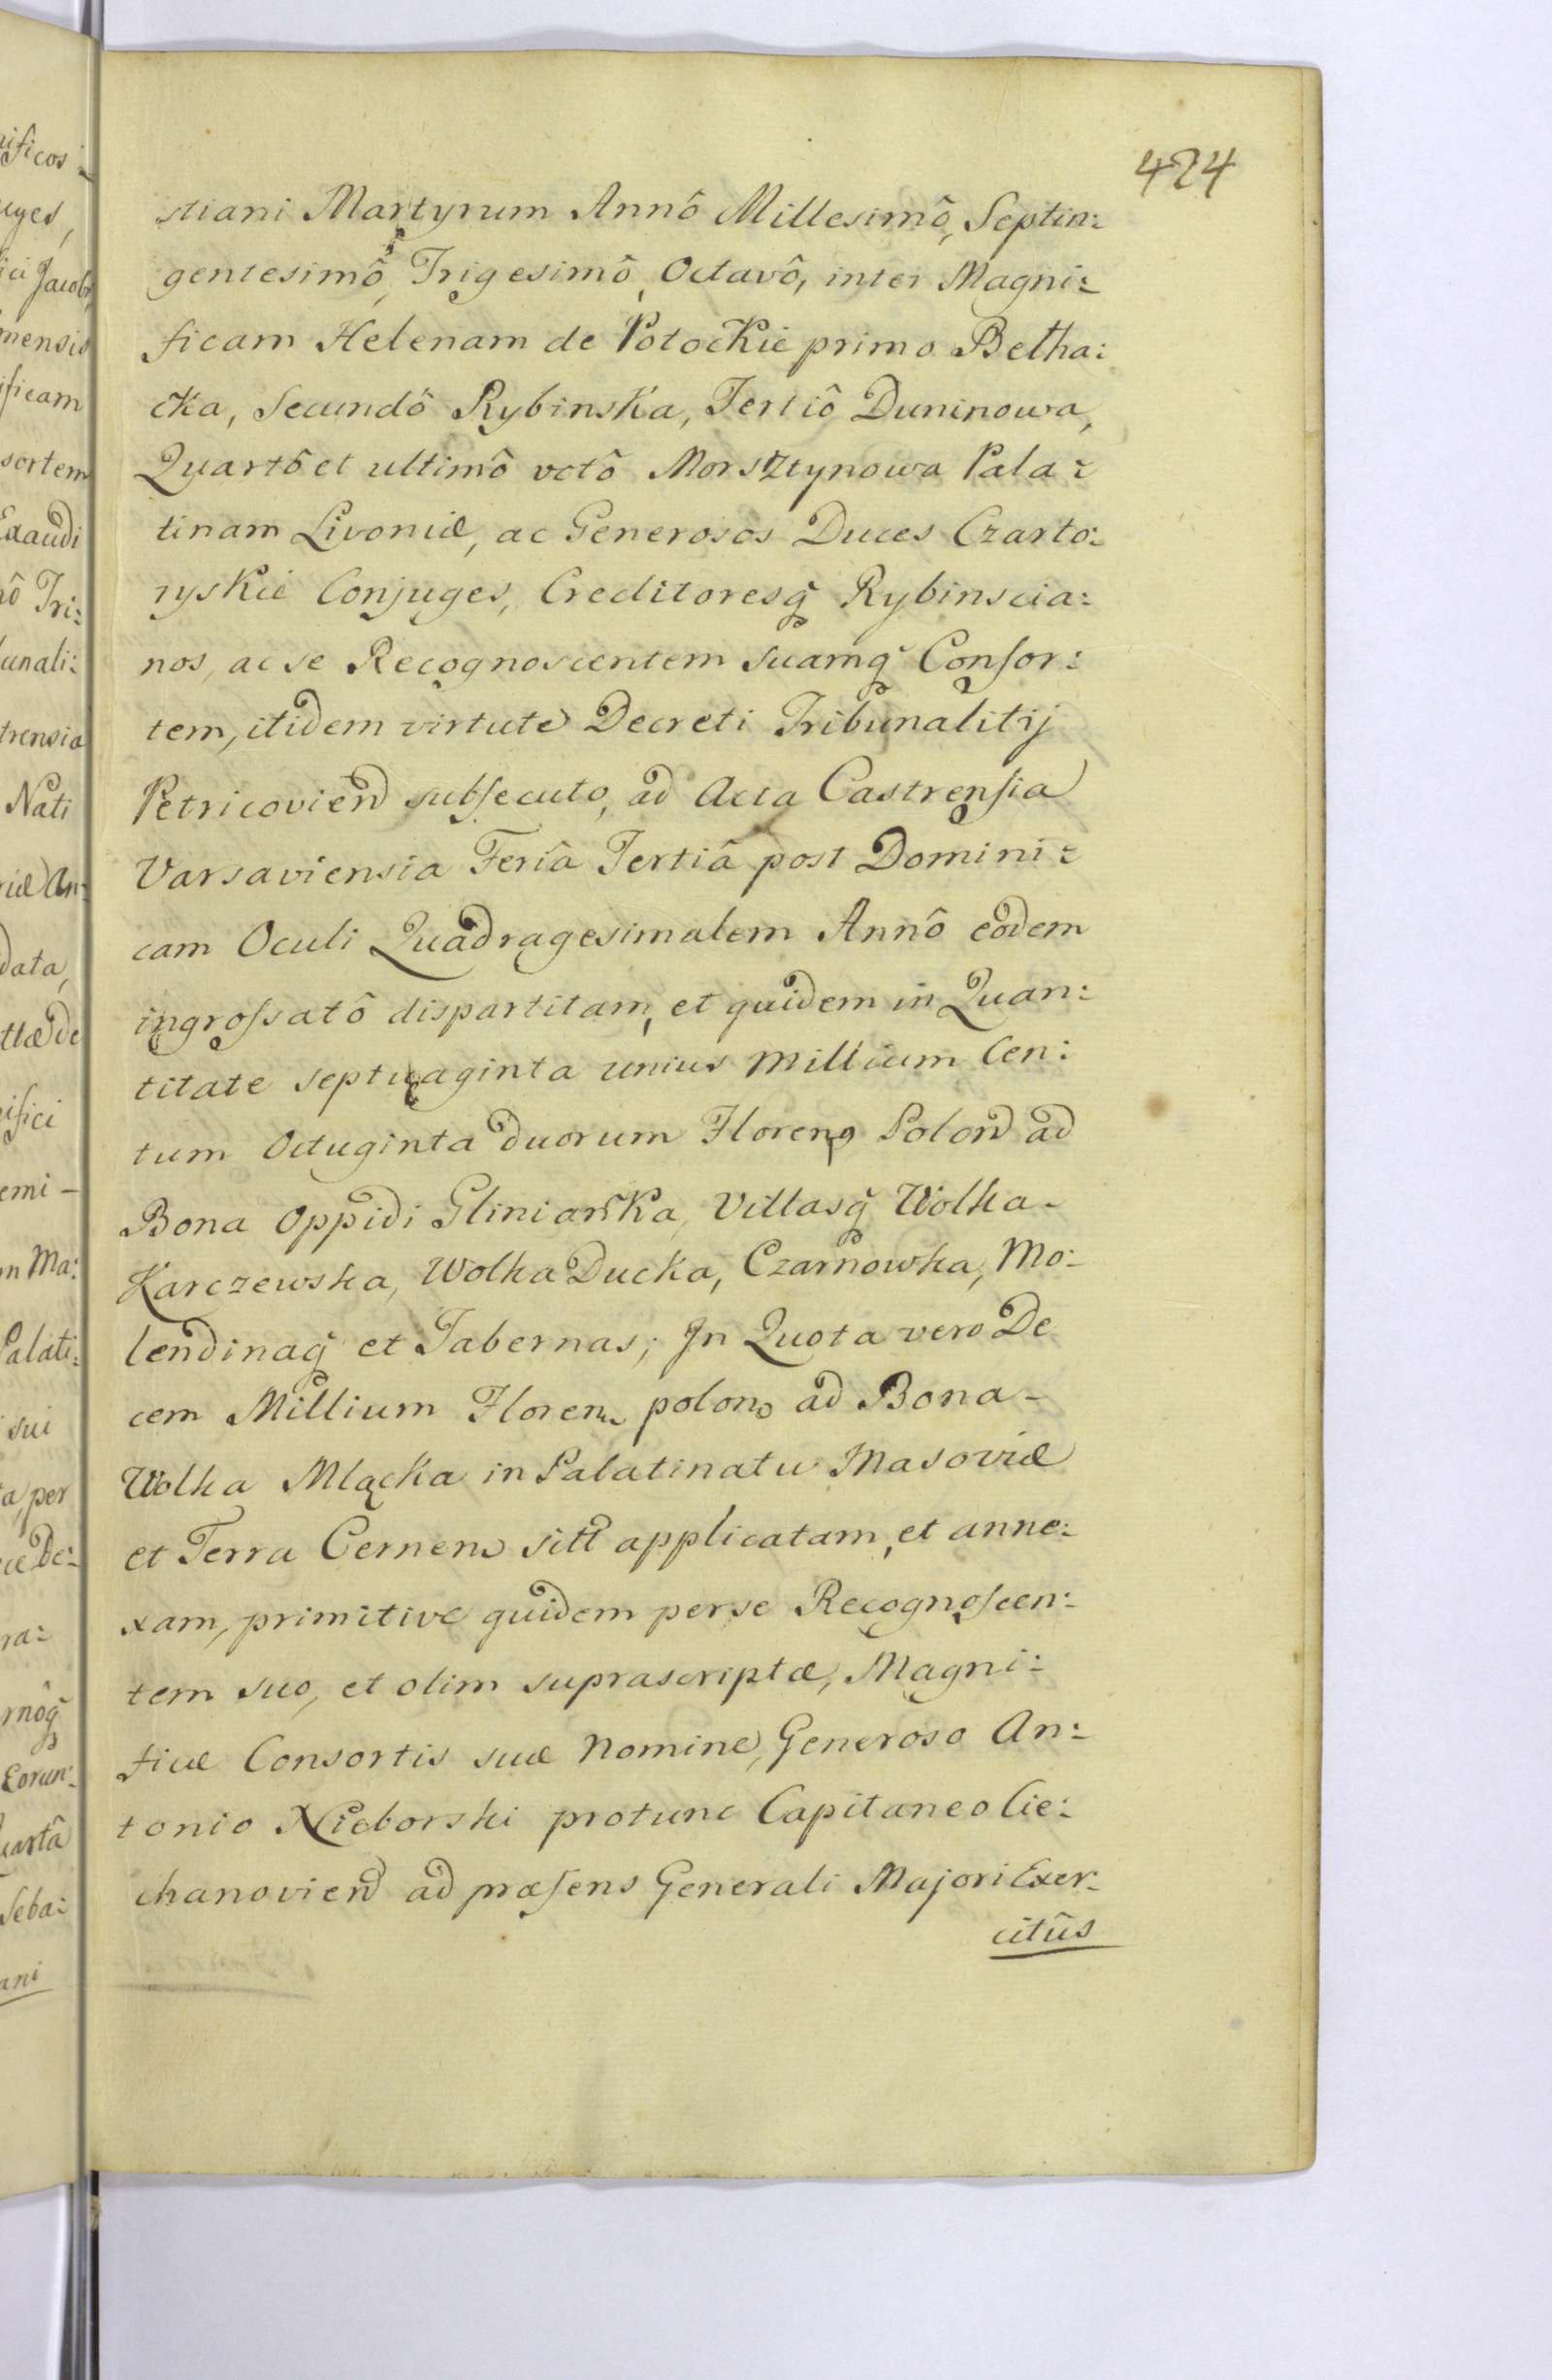 424
stiani Martyrum Annô Millesimô, Septin:
gentesimô, Trigesimô, Octavô, inter Magni:
ficam Helenam de Potockie primo Betha:
cka, Secundô Rybinska, Tertiô Duninowa,
Quartô et ultimô votô Morsztynowa Pala:
tinam Livoniæ, ac Generosos Duces Czarto:
ryskie Conjuges, Creditoresq Rybinscia:
nos, ac se Recognoscentem suamq Consor:
tem, itidem virtute Decreti Tribunalitij
Petricovien subsecuto, ad Acta Castrensia
Varsaviensia Feriâ Tertiâ post Domini:
cam Oculi Quadragesimalem Annô eodem
ingrossatô dispartitam, et quidem in Quan:
titate septuaginta unius Millium Cen:
tum Octuginta duorum Floren Polon ad
Bona Oppidi Gliniarka, Villasq Wolka-
Karczewska, Wolka Ducka, Czarnowka, Mo:
lendinaq et Tabernas; In Quota vero De
cem Millium Floren polon ad Bona-
Wolka Mlącka in Palatinatu Masoviæ
et Terra Cernen sitt applicatam, et anne:
xam, primitive quidem per se Recognoscen:
tem suo, et olim suprascriptæ, Magni:
ficæ Consortis suæ Nomine, Generoso An:
tonio Nieborski protunc Capitaneo Cie:
chanovien ad præsens Generali Majori Exer:
citûs